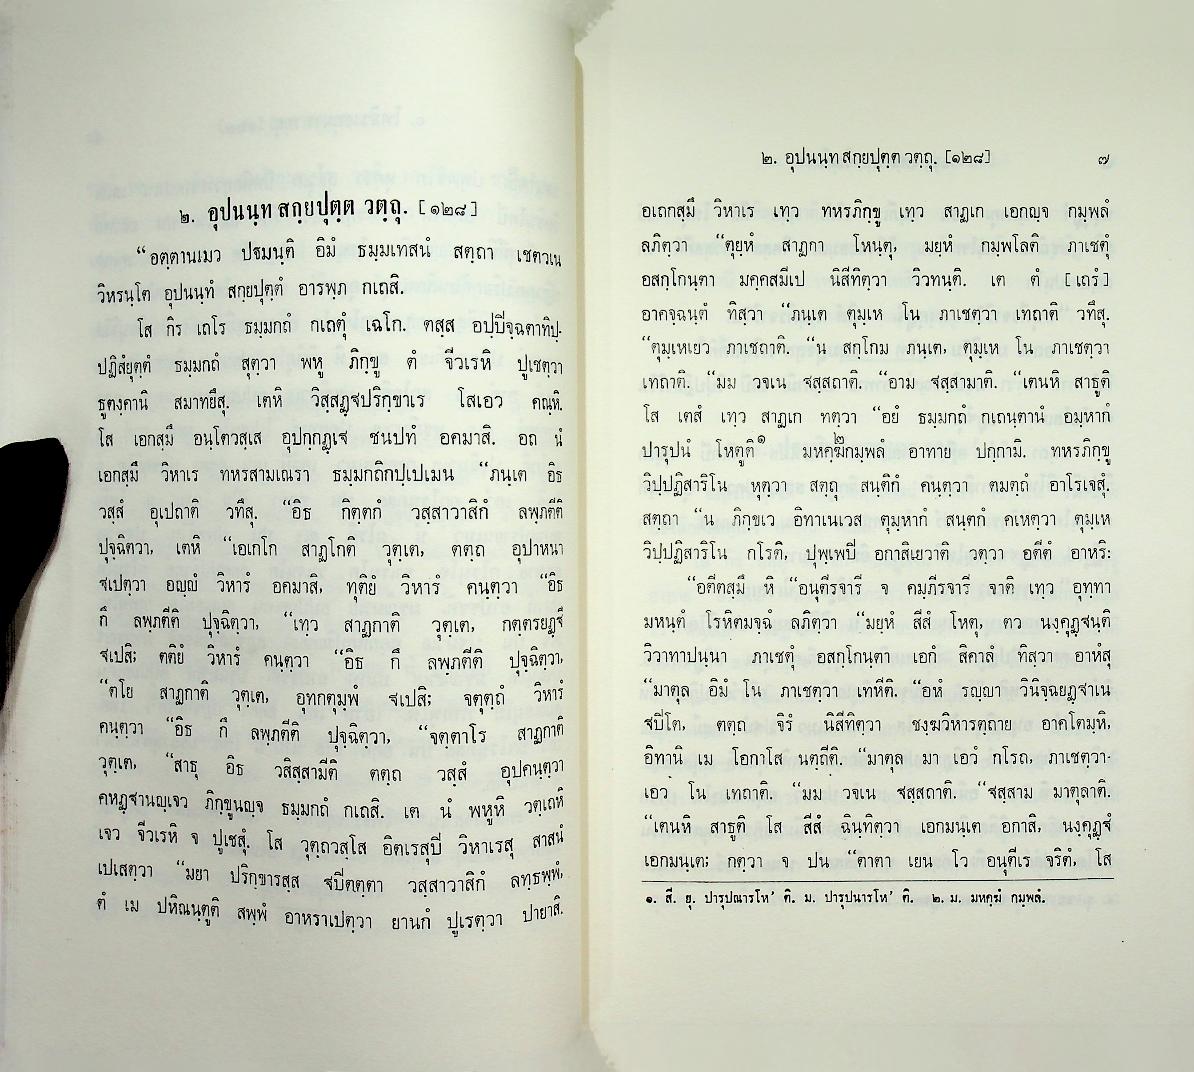 ๒. อุปนนฺท สกฺยปุตฺต วตฺถุ. [๑๒๘]
“อตฺตานเมว ปฐมนฺติ อิมํ ธมฺมเทสนํ สตฺถา เชตวเน
วิหรนฺโต อุปนนฺทํ สกฺยปุตฺตํ อารพฺภ กเถสิ.
โส กิร เถโร ธมฺมกถํ กเถตุํ เฉโก. ตสฺส อปฺปิจฺฉตาทิปฺ-
ปฏิสํยุตฺตํ ธมฺมกถํ สุตฺวา พหู ภิกฺขู ตํ จีวเรหิ ปูเชตฺวา
ธูตงฺคานิ สมาทยึสุ. เตหิ วิสฺสฏฺฐปริกฺขาเร โสเอว คณฺหิ.
โส เอกสฺมึ อนฺโตวสฺเส อุปกฺกฏฺเฐ ชนปทํ อคมาสิ. อถ นํ
เอกสฺมึ วิหาเร ทหรสามเณรา ธมฺมกถิกปฺเปเมน “ภนฺเต อิธ
วสฺสํ อุเปถาติ วทึสุ. “อิธ กิตฺตกํ วสฺสาวาสิกํ ลพฺภตีติ
ปุจฺฉิตฺวา, เตหิ “เอเกโก สาฏโกติ วุตฺเต, ตตฺถ อุปาหนา
ฐเปตฺวา อญฺญํ วิหารํ อคมาสิ, ทุติยํ วิหารํ คนฺตฺวา “อิธ
กึ ลพฺภตีติ ปุจฺฉิตฺวา, “เทฺว สาฏกาติ วุตฺเต, กตฺตรยฏฺฐึ
ฐเปสิ; ตติยํ วิหารํ คนฺตฺวา “อิธ กึ ลพฺภตีติ ปุจฺฉิตฺวา,
“ตโย สาฏกาติ วุตฺเต, อุทกตุมฺพํ ฐเปสิ; จตุตฺถํ วิหารํ
คนฺตฺวา “อิธ กึ ลพฺภตีติ ปุจฺฉิตฺวา, “จตฺตาโร สาฏกาติ
วุตฺเต, “สาธุ อิธ วสิสฺสามีติ ตตฺถ วสฺสํ อุปคนฺตฺวา
คหฏฺฐานญฺเจว ภิกฺขูนญฺจ ธมฺมกถํ กเถสิ. เต นํ พหูหิ วตฺเถหิ
เจว จีวเรหิ จ ปูเชสุํ. โส วุตฺถวสฺโส อิตเรสุปิ วิหาเรสุ สาสนํ
เปเสตฺวา “มยา ปริกฺขารสฺส ฐปิตตฺตา วสฺสาวาสิกํ ลทฺธพฺพํ,
ตํ เม ปหิณนฺตูติ สพฺพํ อาหราเปตฺวา ยานกํ ปูเรตฺวา ปายาสิ.
๒. อุปนนฺท สกฺยปุตฺต วตฺถุ. [๑๒๘] ๗
อเถกสฺมึ วิหาเร เทฺว ทหรภิกฺขู เทฺว สาฏเก เอกญฺจ กมฺพลํ
ลภิตฺวา “ตุยฺหํ สาฏกา โหนฺตุ, มยฺหํ กมฺพโลติ ภาเชตุํ
อสกฺโกนฺตา มคฺคสมีเป นิสีทิตฺวา วิวทนฺติ. เต ตํ [เถรํ]
อาคจฺฉนฺตํ ทิสฺวา “ภนฺเต ตุมฺเห โน ภาเชตฺวา เทถาติ วทึสุ.
“ตุมฺเหเยว ภาเชถาติ. “น สกฺโกม ภนฺเต, ตุมฺเห โน ภาเชตฺวา
เทถาติ. “มม วจเน ฐสฺสถาติ. “อาม ฐสฺสามาติ. “เตนหิ สาธูติ
โส เตสํ เทฺว สาฏเก ทตฺวา “อยํ ธมฺมกถํ กเถนฺตานํ อมฺหากํ
ปารุปนํ โหตูติ๑ มหคฺฆํ๒กมฺพลํ อาทาย ปกฺกามิ. ทหรภิกฺขู
วิปฺปฏิสาริโน หุตฺวา สตฺถุ สนฺติกํ คนฺตฺวา ตมตฺถํ อาโรเจสุํ.
สตฺถา “น ภิกฺขเว อิทาเนเวส ตุมฺหากํ สนฺตกํ คเหตฺวา ตุมฺเห
วิปฺปฏิสาริโน กโรติ, ปุพฺเพปิ อกาสิเยวาติ วตฺวา อตีตํ อาหริ:
“อตีตสฺมึ หิ “อนุตีรจารี จ คมฺภีรจารี จาติ เทฺว อุทฺทา
มหนฺตํ โรหิตมจฺฉํ ลภิตฺวา “มยฺหํ สีสํ โหตุ, ตว นงฺคุฏฺฐนฺติ
วิวาทาปนฺนา ภาเชตุํ อสกฺโกนฺตา เอกํ สิคาลํ ทิสฺวา อาหํสุ
“มาตุล อิมํ โน ภาเชตฺวา เทหีติ. “อหํ รญฺญา วินิจฺฉยฏฺฐาเน
ฐปิโต, ตตฺถ จิรํ นิสีทิตฺวา ชงฺฆวิหารตฺถาย อาคโตมฺหิ,
อิทานิ เม โอกาโส นตฺถีติ. “มาตุล มา เอวํ กโรถ, ภาเชตฺวา-
เอว โน เทถาติ. “มม วจเน ฐสฺสถาติ. “ฐสฺสาม มาตุลาติ.
“เตนหิ สาธูติ โส สีสํ ฉินฺทิตฺวา เอกมนฺเต อกาสิ, นงฺคุฏฺฐํ
เอกมนฺเต; กตฺวา จ ปน “ตาตา เยน โว อนุตีเร จริตํ, โส
๑. สี. ยุ. ปารุปณารโห’ ติ. ม. ปารุปนารโห’ ติ. ๒. ม. มหคฺฆํ กมฺพลํ.